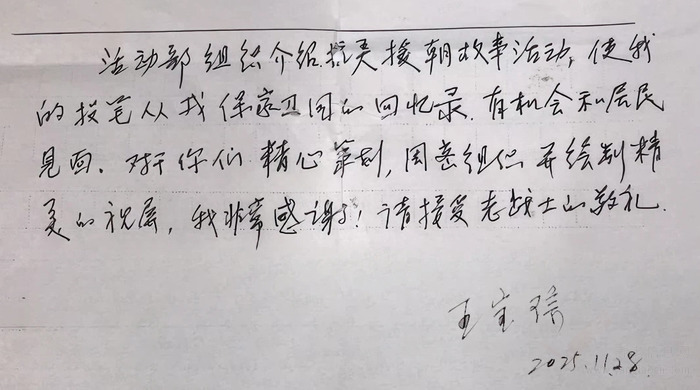 活动部组织介绍抗美援朝故事活动，使我
的投笔从戎保家卫国的回忆录.有机会和居民
见面。对于你们精心策划，周密组织并绘制精
美的祝展，我非常感谢！请接受老战士的敬礼.
王宝
2025.11.28.